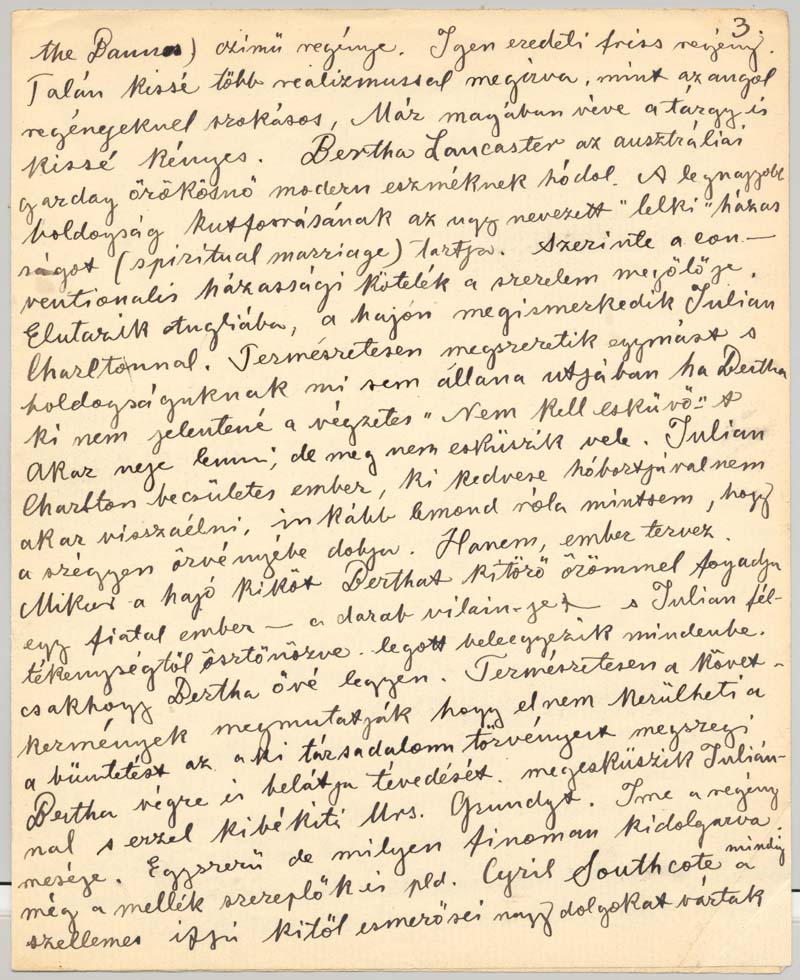 3.
the Bannes) czimü regénye. Igen eredeti friss regény.
Talán kissé több realizmussal megirva, mint az angol
regényeknel szokásos, Már magában véve a tárgy is
kissé kényes. Bertha Lancaster az ausztráliai
gazdag örökösnö modern eszméknek hódol. A legnagyobb
boldogság kutforrásának az ugy nevezett "lelki" házas
ságot (spiritual marriage) tartja. Szerinte a con-
ventionalis házassági kötelék a szerelem megölöje.
Elutazik Angliába, a hajón megismerkedik Julian
Charltonnal. Természetesen megszeretik egymást s
boldogságuknak mi sem állana utjában ha Bertha
ki nem jelentené a végzetes "Nem kell esküvö"-t
Akar neje lenni, de meg nem esküszik vele. Julian
Charlton becsületes ember, ki kedvese hóbortjával nem
akar visszaélni, inkább lemond róla mintsem, hogy
a szégyen örvényébe dobja. Hanem, ember tervez.
Mikor a hajó kiköt Berthat kitörö örömmel fogadja
egy fiatal ember — a darab vilain-je — s Julian fél-
tékenységtöl ösztönözve legott beleegyezik mindenbe.
csakhogy Bertha övé legyen. Természetesen a követ-
kezmények megmutatják hogy el nem kerülheti a
a büntetést az a ki társadalom törvényeit megszegi
Bertha végre is belátja tévedését. megesküszik Julián-
nal s ezzel kibékiti Mrs. Grundyt. Ime a regény
meséje. Egyszerü de milyen finoman kidolgozva
még a mellék szereplök is pld. Cyril Southcote a mindig
szellemes ifjú kitöl esmerösei nagy dolgokat vártak